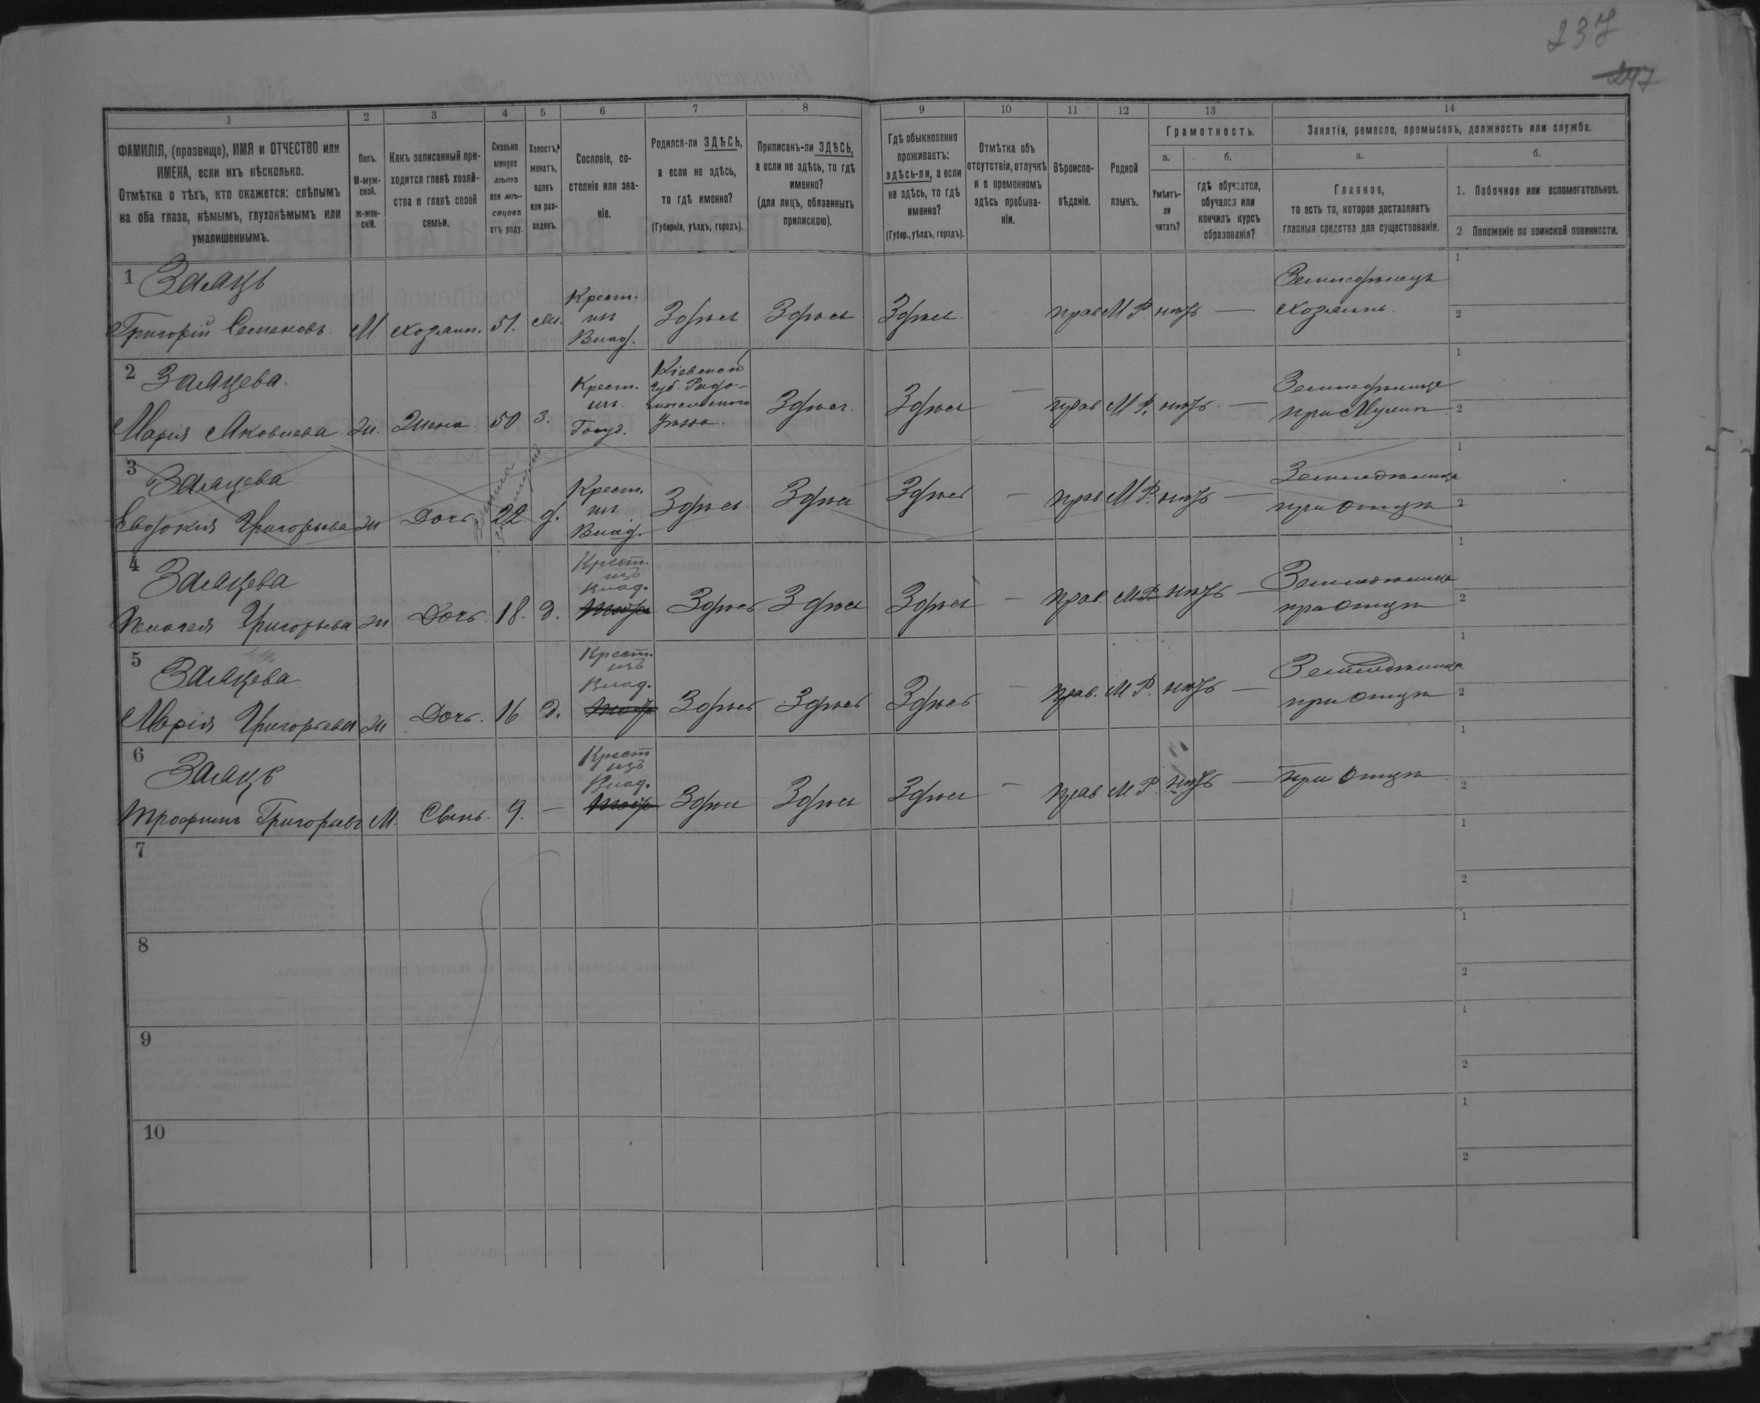 237
247
1 2 3 4 5 6 7 8 9 10 11 12 13 14
ФАМИЛІЯ, (прозвище), ИМЯ и ОТЧЕСТВО или
ИМЕНА, если ихъ нѣсколько.
Отмѣтка о тѣхъ, кто окажется: слѣпымъ
на оба глаза, нѣмымъ, глухонѣмымъ или
умалишеннымъ.
Полъ.
М-муж-
ской.
Ж-жен-
скій.
Какъ записанный при-
ходится главѣ хозяй-
ства и главѣ своей
семьи.
Сколько
минуло
лѣтъ
или мѣ-
сяцевъ
отъ роду.
Холостъ,
женатъ,
вдовъ
или раз-
веденъ.
Сословіе, со-
стояніе или зва-
ніе.
Родился-ли ЗДѢСЬ,
а если не здѣсь,
то гдѣ именно?
(Губернія, уѣздъ, городъ).
Приписанъ-ли ЗДѢСЬ,
а если не здѣсь, то гдѣ
именно?
(для лицъ, обязанныхъ
припискою).
Гдѣ обыкновенно
проживаетъ:
здѣсь-ли, а если
не здѣсь, то гдѣ
именно?
(Губер., уѣздъ, городъ).
Отмѣтка объ
отсутствіи, отлучкѣ
и о временномъ
здѣсь пребыва-
ніи.
Вѣроиспо-
вѣданіе.
Родной
языкъ.
Грамотность.
а.
Умѣетъ-
ли
читать?
б.
гдѣ обучается,
обучался или
кончилъ курсъ
образованія?
Занятія, ремесло, промыселъ, должность или служба.
а.
Главное,
то есть то, которое доставляетъ
главныя средства для существованія.
б.
1. Побочное или вспомогательное.
2 Положеніе по воинской повинности.
1 Заяцъ
Григорій Семеновъ М хозяинъ. 51. жен. Крест. изъ Влад. Здѣсь Здѣсь Здѣсь — прав М Р нѣтъ — Земледѣлецъ хозяинъ. 1 2
2 Заяцева.
Марія Яковлева. ж. Жена. 50 з. Крест. изъ Госуд. Кіевской губ. Радо-мысльского Уѣзда. Здѣсь. Здѣсь — прав М Р. нѣтъ — Земледѣлица при Мужѣ 1 2
3 Заяцева
Евдокия Григорьева ж Дочь 22 д. Крест. изъ Влад. Здѣсь Здѣсь Здѣсь — прав М Р. нѣтъ — Земледѣлица при Отцѣ 1 2
4 Заяцева
Григорьева ж Дочь. 18. д. Крест. изъ Влад. Здѣсь Здѣсь Здѣсь — прав. М Р. нѣтъ — Земледѣлица при Отцѣ 1 2
5 Заяцева
Марія Григорьева ж Дочь. 16 д. Крест. изъ Влад. Здѣсь Здѣсь Здѣсь — прав. М Р. нѣтъ — Земледѣлица при Отцѣ 1 2
6 Заяцъ
Трофимъ Григорьевъ М. Сынъ. 9. — Крест изъ Влад. Здѣсь Здѣсь Здѣсь — прав М Р. нѣтъ — при Отцѣ 1 2
7 1 2
8 1 2
9 1 2
10 1 2